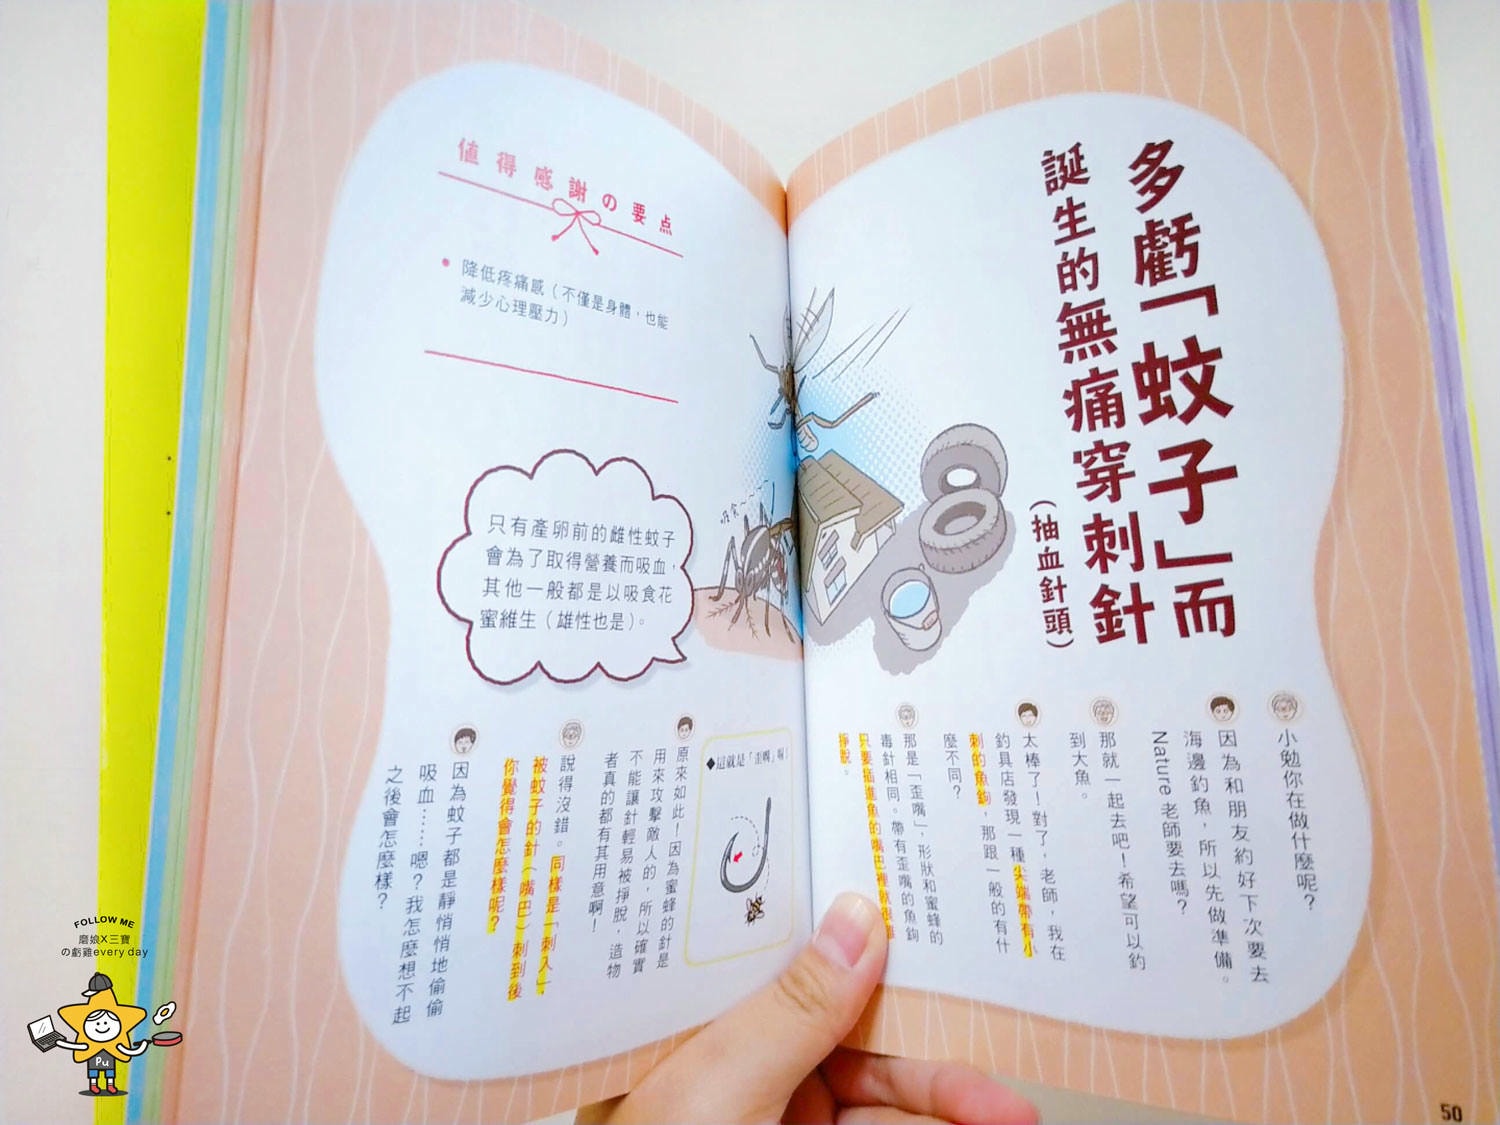 多虧「蚊子」而
誕生的無痛穿刺針
(抽血針頭)
小勉你在做什麼呢?
因為和朋友約好下次要去
海邊釣魚,所以先做準備。
Nature 老師要去嗎?
那就一起去吧!希望可以釣
到大魚。
太棒了!對了,老師,我在
釣具店發現一種尖端帶有小
刺的魚鉤,那跟一般的有什
麼不同?
那是「歪嘴」,形狀和蜜蜂的
毒針相同。帶有歪嘴的魚鉤
只要插進魚的嘴巴裡就很難
掙脫。
50
值得感謝の要点
● 降低疼痛感(不僅是身體,也能
減少心理壓力)
吸食~~~
只有產卵前的雌性蚊子
會為了取得營養而吸血,
其他一般都是以吸食花
蜜維生(雄性也是)。
◆這就是「歪嘴」啊!
原來如此!因為蜜蜂的針是
用來攻擊敵人的,所以確實
不能讓針輕易被掙脫,造物
者真的都有其用意啊!
說得沒錯。同樣是「刺入」,
被蚊子的針(嘴巴)刺到後
你覺得會怎麼樣呢?
因為蚊子都是靜悄悄地偷偷
吸血……嗯?我怎麼想不起
之後會怎麼樣?
FOLLOW ME
磨娘X三寶
の虧雞every day
Pu